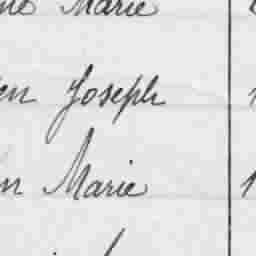 Marie
en Joseph
n Marie